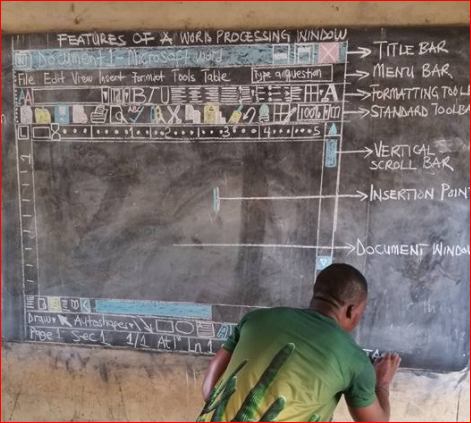 FEATURES OF A WORD PROCESSING WINDOW
Document 1 - Microsoft word
TITLE BAR
File Edit View Insert Format Tools Table
Type a question
MENU BAR
A B I U A
FORMATTING TOOL
ABC 100%
STANDARD TOOLBA
L 8 1 2 3 4 5
VERTICAL
SCROLL BAR
1
INSERTION POIN
DOCUMENT WINDOW
Draw Autoshapes
Page 1 Sec 1 1/1 At 1" Ln 1